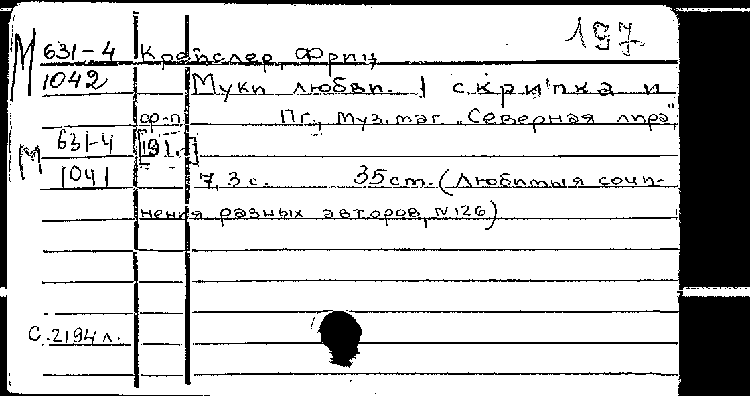 197
М 631-4 Крейслер, Фриц
1042 Муки любви. | скрипка и
ф-п. Пг., Муз. маг. „Северная лира",
М 631-4 [191.-]
1041 7, 3 с. 35 cm. (Любимыя сочи-
нения разных авторов, N126)
С.2194 л.